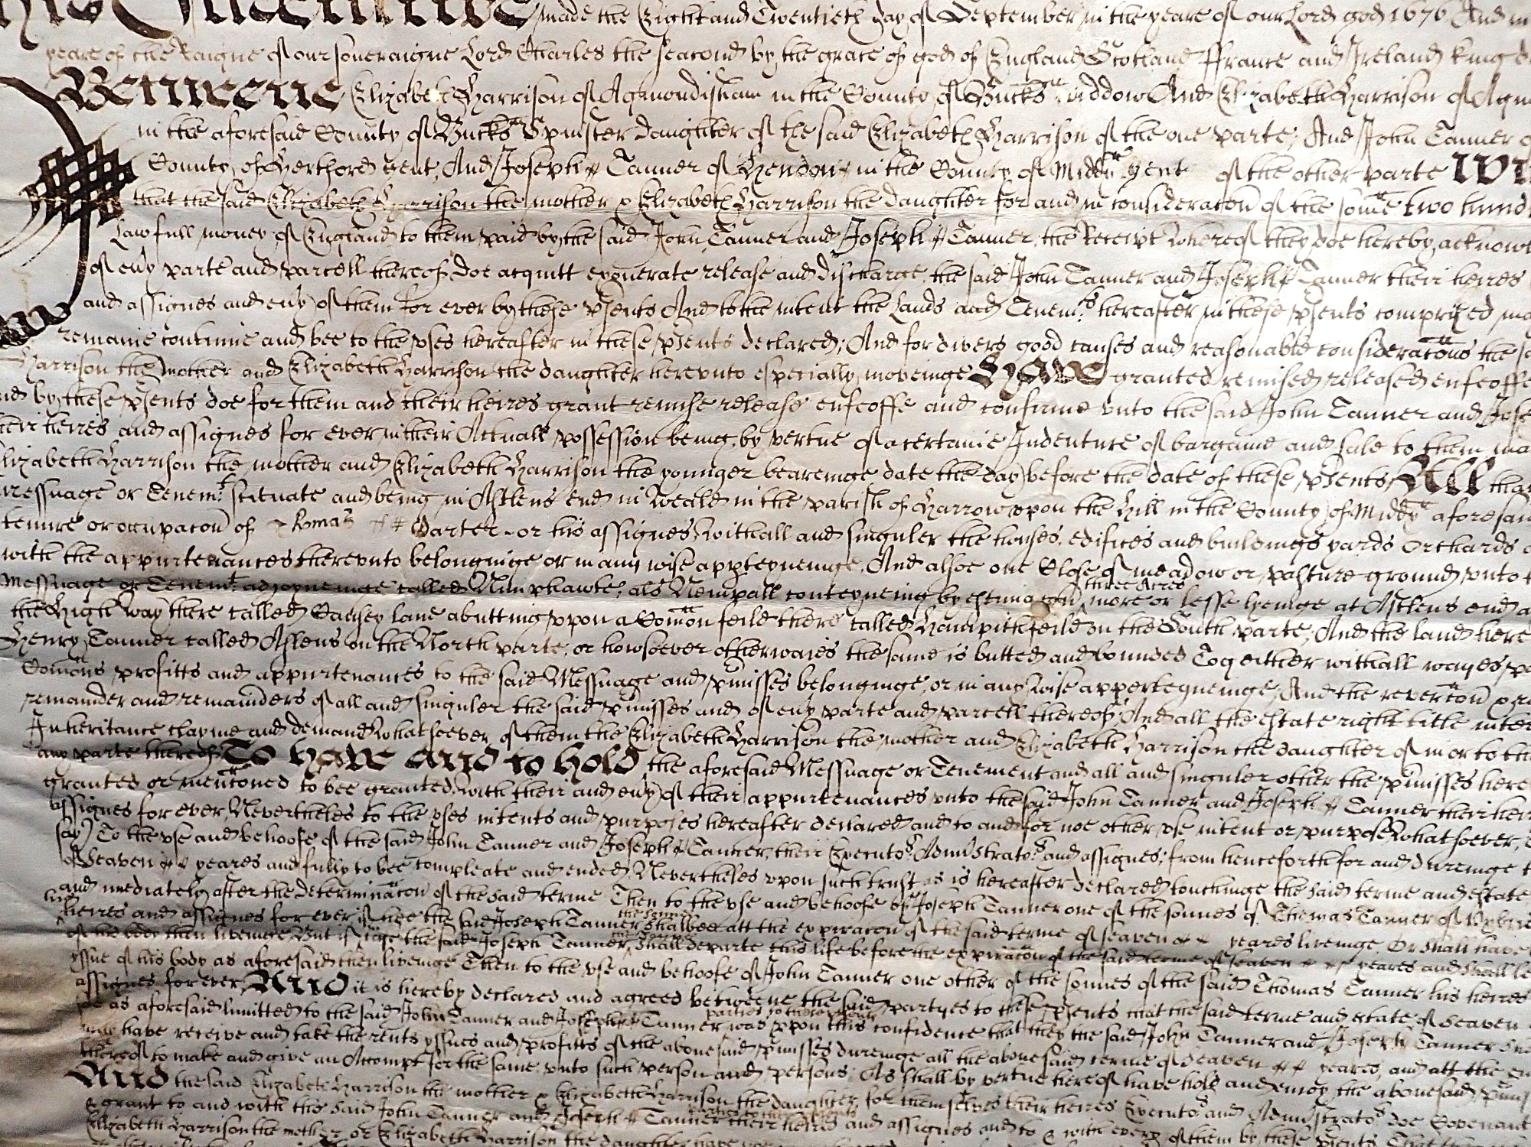 This Indenture made the Eight and Twentieth day of September in the yeare of our Lord god 1676 And in
yeare of the Raigne of our soveraigne Lord Charles the seacond by the grace of god of England Scotland ffrance and Ireland king
Betweene Elizabeth Harrison of Agmondisham in the County of Bucks widdow And Elizabeth Harrison of Agm
in the aforesaid County of Bucks Spinster daughter of the said Elizabeth Harrison of the one parte, And John Tanner
County of Hertford gent, And Joseph Tanner of Hendon in the County of Middx gent of the other parte Wi
that the said Elizabeth Harrison the mother & Elizabeth Harrison the daughter for and in consideracon of the some two hund
Lawfull money of England to them paid by the said John Tanner and Joseph Tanner, the Receipt whereof they doe hereby acknow
of eny parte and parcell thereof doe acquitt exonerate release and discharge the said John Tanner and Joseph Tanner their heires
and assignes and eny of them for ever by these psents And to the intent the Lands and Tenemts hereafter in these psents comprized ma
remaine continue and bee to the vses hereafter in these psents declared; And for divers good causes and reasonable consideracons the s
Harrison the mother and Elizabeth Harrison the daughter herevnto especially moveinge Have granted remised released enfeoffe
nd by these psents doe for them and their heires grant remise release enfeoffe and confirme vnto the said John Tanner and Jose
heir heires and assignes for ever in their Actuall possession being by vertue of a certaine Indenture of bargaine and sale to them ma
lizabeth Harrison the mother and Elizabeth Harrison the younger beareinge date the day before the date of these psents All that
messuage or Tenemt scituate and being in Astens end in Weald in the parish of Harrow vpon the Hill in the County of Middx aforesai
tenure or occupacon of Carter or his assignes Withall and singuler the houses edifices and buildings yards Orchards
with the appurtenances therevnto belonginge or in any wise apperteyneinge, And alsoe one Close of meadow or pasture ground vnto
Messuage or Tenemt adjoyneinge called als conteyneing by estimacon three acres more or lesse lyeinge at Astens end a
the High way there called lane abutting vpon a Comon feild there called feild on the South parte, And the land here
Henry Tanner called Astens on the North parte, or howsoever otherwaies the same is butted and bounded Together withall wayes
Comons profitts and appurtenances to the said Messuage and pmisses belonginge or in any wise apperteyneinge, And the revercon
remainder and remainders of all and singuler the said pmisses and of eny parte and parcell thereof, And all the estate right title inter
Inheritance clayme and demand whatsoever of them the Elizabeth Harrison the mother and Elizabeth Harrison the daughter of in or to th
any parte thereof To have and to hold the aforesaid Messuage or Tenement and all and singuler other the pmisses here
granted or mencioned to bee granted with their and eny of their appurtenances vnto the said John Tanner and Joseph Tanner their hei
assignes for ever, Neverthelesse to the vses intents and purposes hereafter declared and to and for noe other vse intent or purpose whatsoever,
say) To the vse and behoofe of the said John Tanner and Joseph Tanner, their Executors Administrators and assignes, from henceforth for and dureinge
of Seaven yeares and fully to bee compleate and ended Neverthelesse vpon such trust as is hereafter declared touchinge the said terme and estate
and imediately after the determinacon of the said terme Then to the vse and behoofe of Joseph Tanner one of the sonnes of Thomas Tanner of
heires and assignes for ever if hee the said Joseph Tanner shalbee att the expiracon of the said terme of seaven yeares liveinge Or shall have
of his body then liveinge But if hee the said Joseph Tanner shall departe this life before the expiracon of the said terme of seaven yeares and shall
yssue of his body as aforesaid then liveinge Then to the vse and behoofe of John Tanner one other of the sonnes of the said Thomas Tanner his heires
assignes for ever, And it is hereby declared and agreed betweene the said partyes to these psents that the said terme and estate of Seaven
as aforesaid limitted to the said John Tanner and Joseph Tanner was vpon this confidence that they the said John Tanner and Joseph Tanner
may have receive and take the rents yssues and profitts of the abovesaid pmisses dureinge all the abovesaid terme of seaven yeares, and att the en
thereof to make and give an Accompt for the same vnto such person and persons As shall by vertue hereof have hold and enjoy the abovesaid pmis
And the said Elizabeth Harrison the mother & Elizabeth Harrison the daughter for themselves their heires Executors and Administrators doe Covenant
& grant to and with the said John Tanner and Joseph Tanner their heires and assignes and to & with every of them by these psents That
Elizabeth Harrison the mother or Elizabeth Harrison the daughter have